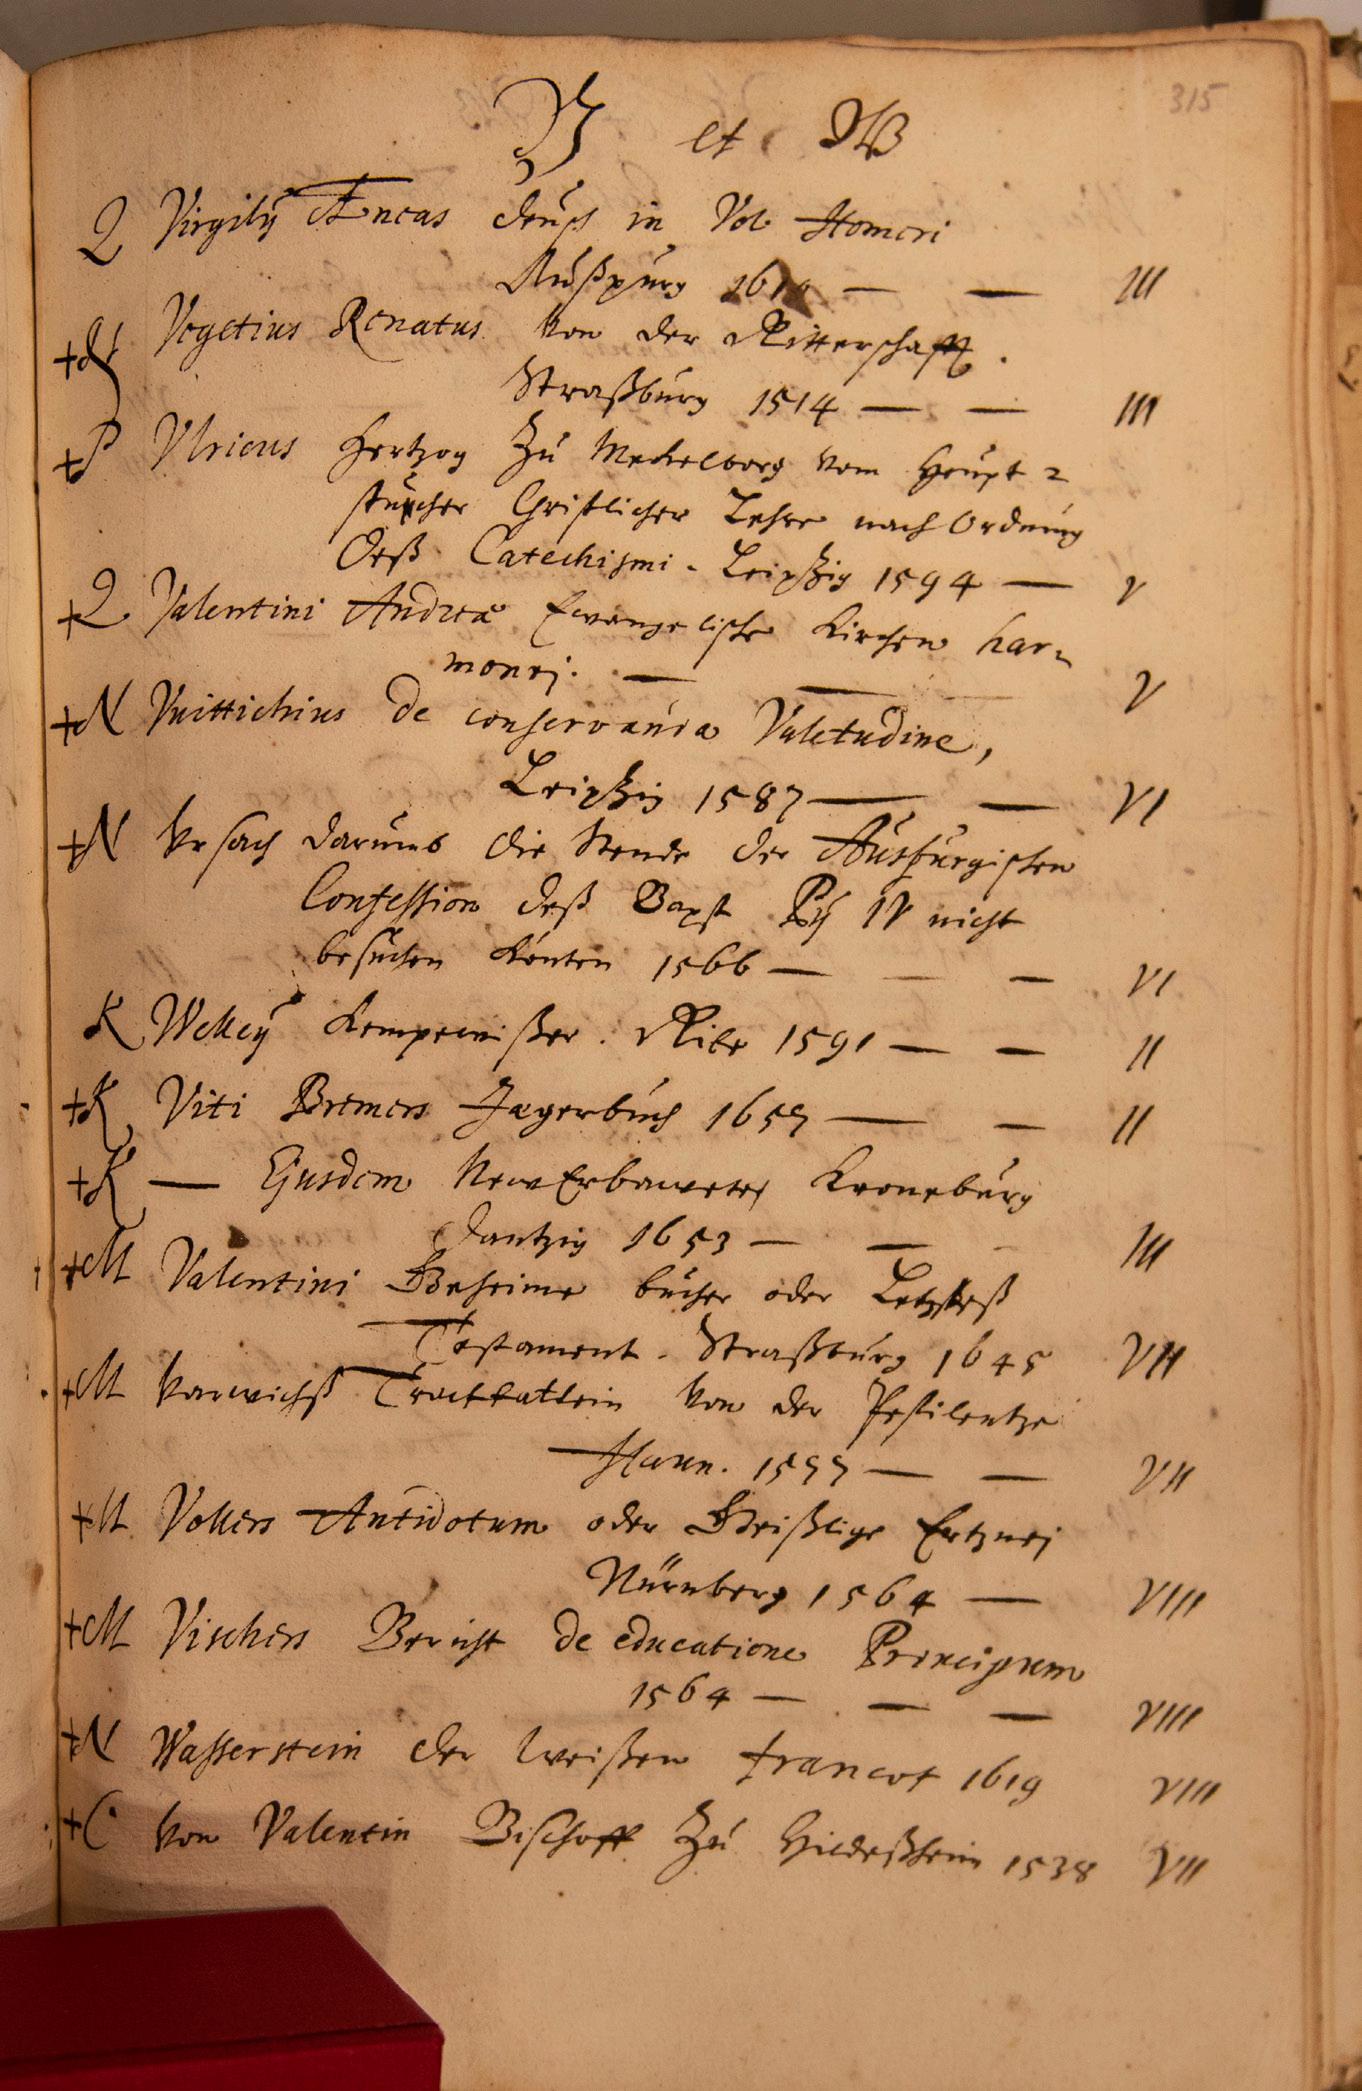 315
V et W
Q Virgilij Æneas deusch in Vol. Homeri
Außpurg 1610 — — III
+ Vegetius Renatus von der Ritterschafft.
Straßburg 1514 — — III
+P Vlricus Hertzog Zu Meckelborg vom Heupt
stucher Christlicher Lehre nach Ordnung
deß Catechismi. Leipzig 1594 — V
+Q Valentini Andreæ Evangelische Kirchen har-
monej. — — V
+N Vuittichius de conservanda Valetudine,
Leipzig 1587 — — VI
+N Vrsach darumb die Stende der Ausburgischen
Confession deß Bapst Pij IV nicht
besuchen konten 1566 — — — VI
K Weckeÿ 1591 — — II
+K Viti Bremers Jagerbuch 1657 — — II
+K — Ejusdem New Erbawetes Kroneburg
Dantzig 1653 — — III
+M Valentini Geheime bucher oder Letzsteß
Testament. Straßburg 1645 VII
+M Varwichß Tracktatlein von der Pestilentze
Hann. 1577 — — VII
+M Volters Antidotum oder Geistlige Ertznej
Nürnberg 1564 — VIII
+M Vischers Bericht de educatione Principum
1564 — — — VIII
+N Wasserstein der Weißen francof 1619 VIII
+C Von Valentin Bischoff Zu Hildeßheim 1538 VII